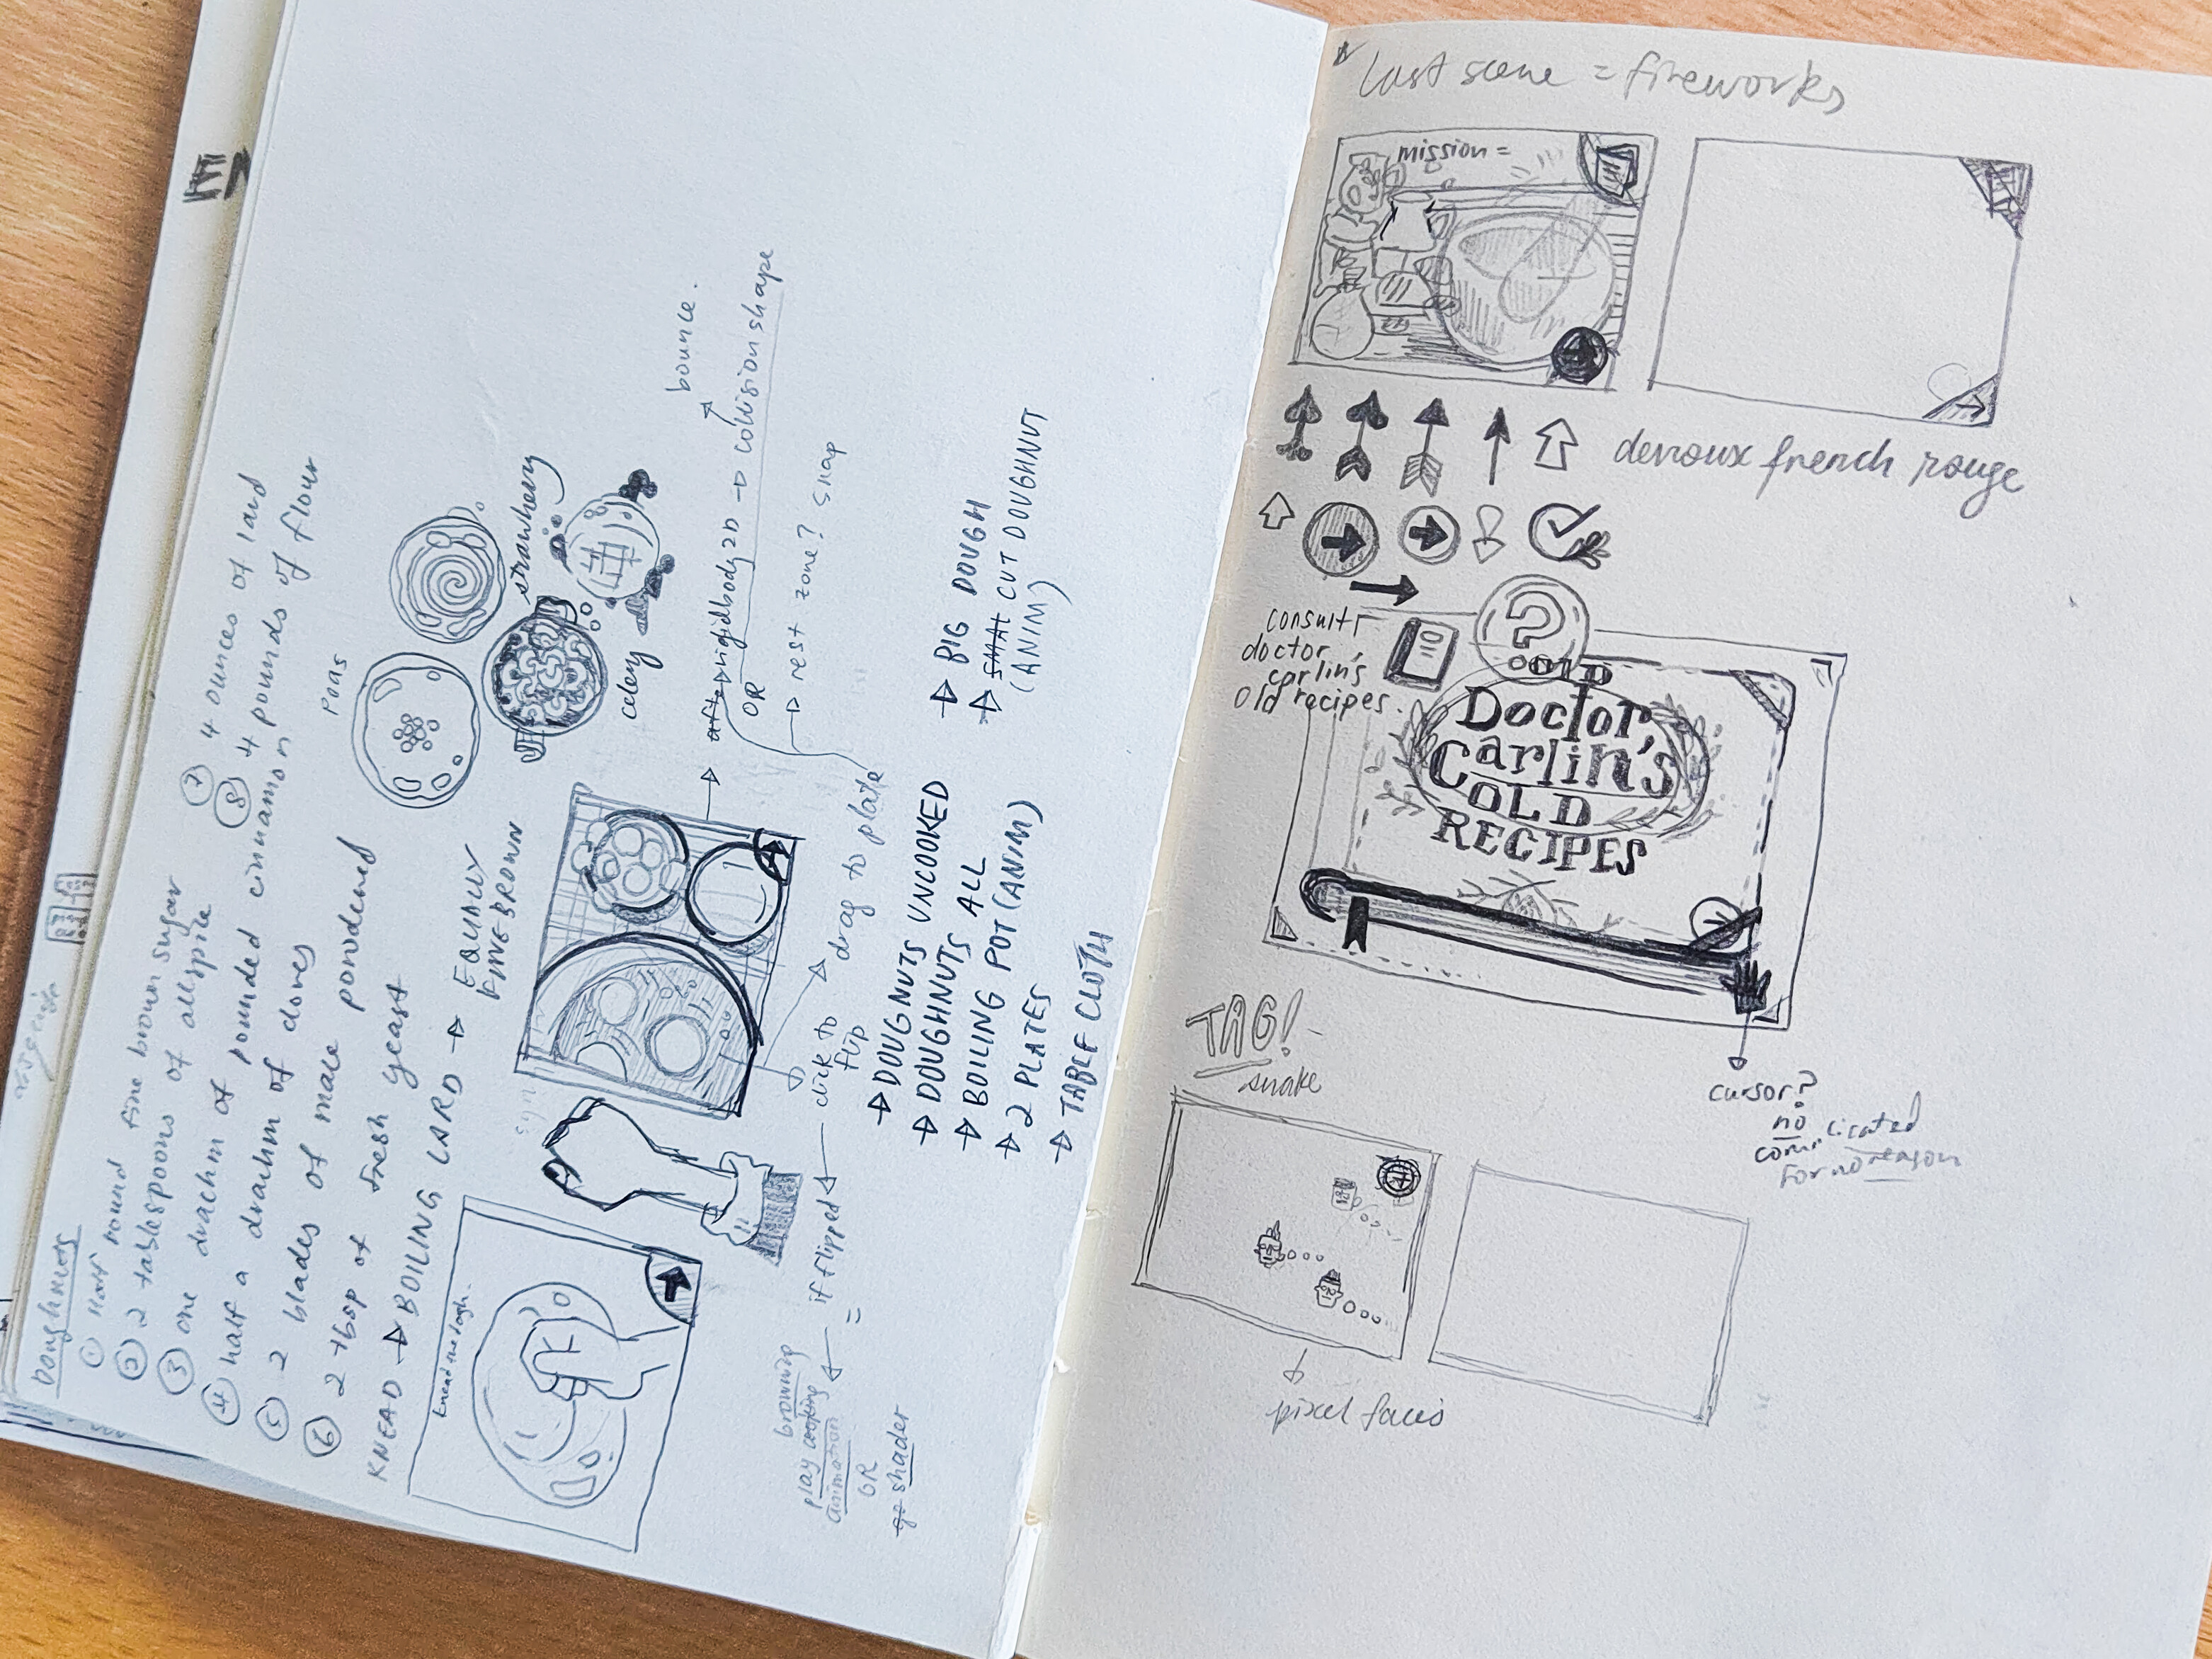 Doughnuts
① Half pound fine brown sugar
② 2 tablespoons of allspice
③ one drachm of pounded cinnamon
④ half a drachm of cloves
⑤ 2 blades of mace powdered
⑥ 2 tbsp of fresh yeast
⑦ 4 ounces of lard
⑧ 4 pounds of flour
KNEAD → BOILING LARD → EQUALLY
FINE BROWN
Knead the dough.
peas
strawberry
celery
rigidbody2D → collision shape
bounce.
OR
→ rest zone? snap
click to
flip
drag to plate
if flipped
=
browning
play cooking
animation
OR
go shader
→ DOUGNUTS UNCOOKED
→ DOUGHNUTS ALL
→ BOILING POT (ANIM)
→ 2 PLATES
→ TABLE CLOTH
→ BIG DOUGH
→ SMAL CUT DOUGHNUT
(ANIM)
last scene = fireworks
mission =
devroux french rouge
consult
doctor
carlin's
old recipes.
?
OLD
Doctor,
Carlin's
OLD
RECIPES
cursor?
no
complicated
for no reason
TAG!
snake
pixel faces